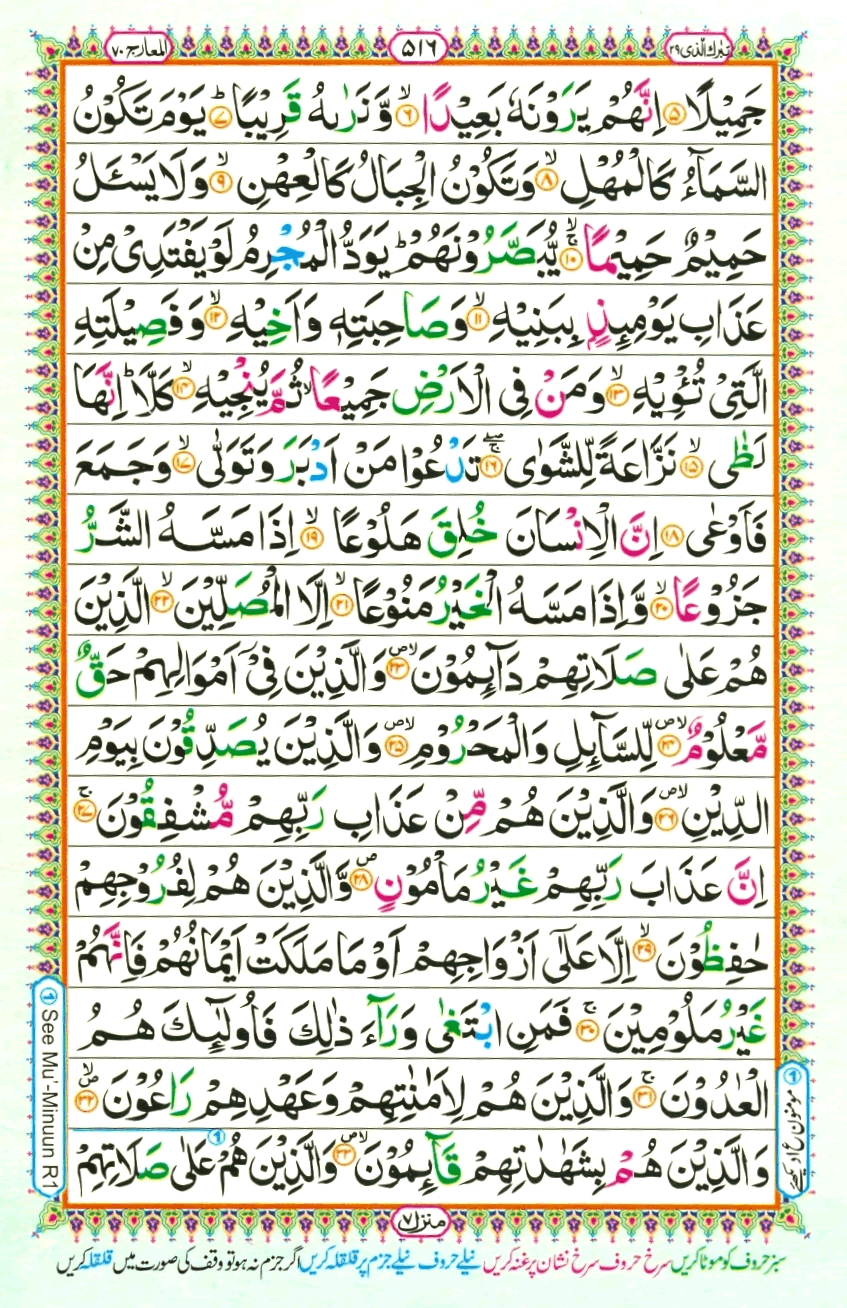 تبٰرك الّذی ٢٩
٥١٦
المعارج ٧٠
جَمِيْلًا ۝٥ اِنَّهُمْ يَرَوْنَهٗ بَعِيْدًا ۝٦ۙ وَّ نَرٰىهُ قَرِيْبًا ۝٧ؕ يَوْمَ تَكُوْنُ
السَّمَآءُ كَالْمُهْلِ ۝٨ۙ وَتَكُوْنُ الْجِبَالُ كَالْعِهْنِ ۝٩ۙ وَلَا يَسْـَٔلُ
حَمِيْمٌ حَمِيْمًا ۝١٠ۚۖ يُّبَصَّرُوْنَهُمْ ؕ يَوَدُّ الْمُجْرِمُ لَوْ يَفْتَدِىْ مِنْ
عَذَابِ يَوْمِئِذٍۭ بِبَنِيْهِ ۝١١ۙ وَصَاحِبَتِهٖ وَاَخِيْهِ ۝١٢ۙ وَفَصِيْلَتِهِ
الَّتِىْ تُـْٔوِيْهِ ۝١٣ۙ وَمَنْ فِى الْاَرْضِ جَمِيْعًا ۙ ثُمَّ يُنْجِيْهِ ۝١٤ۙ كَلَّا ؕ اِنَّهَا
لَظٰى ۝١٥ۙ نَزَّاعَةً لِّلشَّوٰى ۝١٦ۚۖ تَدْعُوْا مَنْ اَدْبَرَ وَتَوَلّٰى ۝١٧ۙ وَجَمَعَ
فَاَوْعٰى ۝١٨ اِنَّ الْاِنْسَانَ خُلِقَ هَلُوْعًا ۝١٩ۙ اِذَا مَسَّهُ الشَّرُّ
جَزُوْعًا ۝٢٠ۙ وَّاِذَا مَسَّهُ الْخَيْرُ مَنُوْعًا ۝٢١ۙ اِلَّا الْمُصَلِّيْنَ ۝٢٢ۙ الَّذِيْنَ
هُمْ عَلٰى صَلَاتِهِمْ دَآئِمُوْنَ ۝٢٣۪ۙ وَالَّذِيْنَ فِىْۤ اَمْوَالِهِمْ حَقٌّ
مَّعْلُوْمٌ ۝٢٤۪ۙ لِّلسَّآئِلِ وَالْمَحْرُوْمِ ۝٢٥۪ۙ وَالَّذِيْنَ يُصَدِّقُوْنَ بِيَوْمِ
الدِّيْنِ ۝٢٦۪ۙ وَالَّذِيْنَ هُمْ مِّنْ عَذَابِ رَبِّهِمْ مُّشْفِقُوْنَ ۝٢٧ۚ
اِنَّ عَذَابَ رَبِّهِمْ غَيْرُ مَاْمُوْنٍ ۝٢٨۪ وَّالَّذِيْنَ هُمْ لِفُرُوْجِهِمْ
حٰفِظُوْنَ ۝٢٩ۙ اِلَّا عَلٰٓى اَزْوَاجِهِمْ اَوْ مَا مَلَكَتْ اَيْمَانُهُمْ فَاِنَّهُمْ
غَيْرُ مَلُوْمِيْنَ ۝٣٠ۚ فَمَنِ ابْتَغٰى وَرَآءَ ذٰلِكَ فَاُولٰٓئِكَ هُمُ
الْعٰدُوْنَ ۝٣١ۚ وَالَّذِيْنَ هُمْ لِاَمٰنٰتِهِمْ وَعَهْدِهِمْ رَاعُوْنَ ۝٣٢۪ۙ
وَالَّذِيْنَ هُمْ بِشَهٰدٰتِهِمْ قَآئِمُوْنَ ۝٣٣۪ۙ وَالَّذِيْنَ هُمْ عَلٰى صَلَاتِهِمْ
١
١ See Mu'-Minuun R1
١ مؤمنون ع١ دیکھئے
منزل ٧
سبز حروف کو موٹا کریں سرخ حروف سرخ نشان پر غنہ کریں نیلے حروف نیلے جزم پر قلقلہ کریں اگر جزم نہ ہو تو وقف کی صورت میں قلقلہ کریں